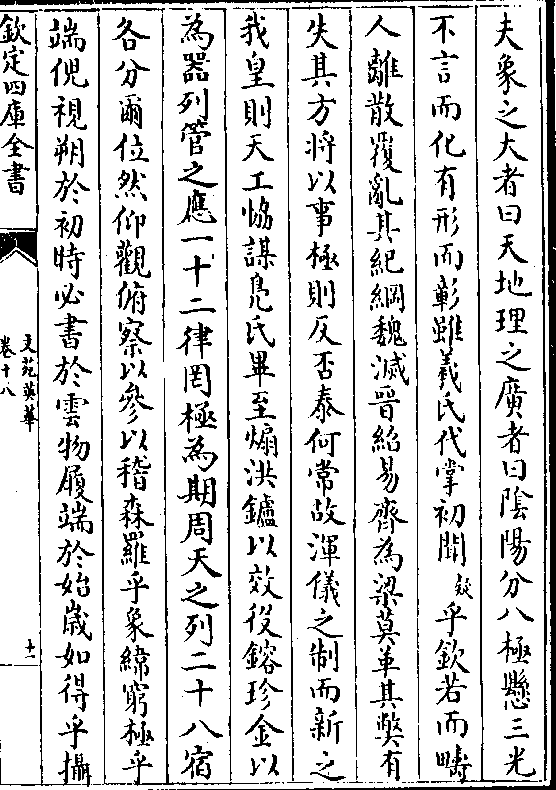 夫象之大者曰天地理之廣者曰陰陽分八極懸三光
不言而化有形而彰雖羲氏代掌初聞闕乎欽若而疇
人離散覆亂其紀綱魏滅晉紹易齊為梁莫革其弊有
失其方將以事極則反否泰何常故渾儀之制而新之
我皇則天工恊謀鳧氏畢至煽洪鑪以效役鎔珍金以
為器列管之應一十二律罔極為期周天之列二十八宿
各分爾位然仰觀俯察以參以稽森羅乎象緯窮極乎
端倪視朔於初時必書於雲物履端於始歲如得乎攝
欽定四庫全書
文苑英華
卷十八
十一